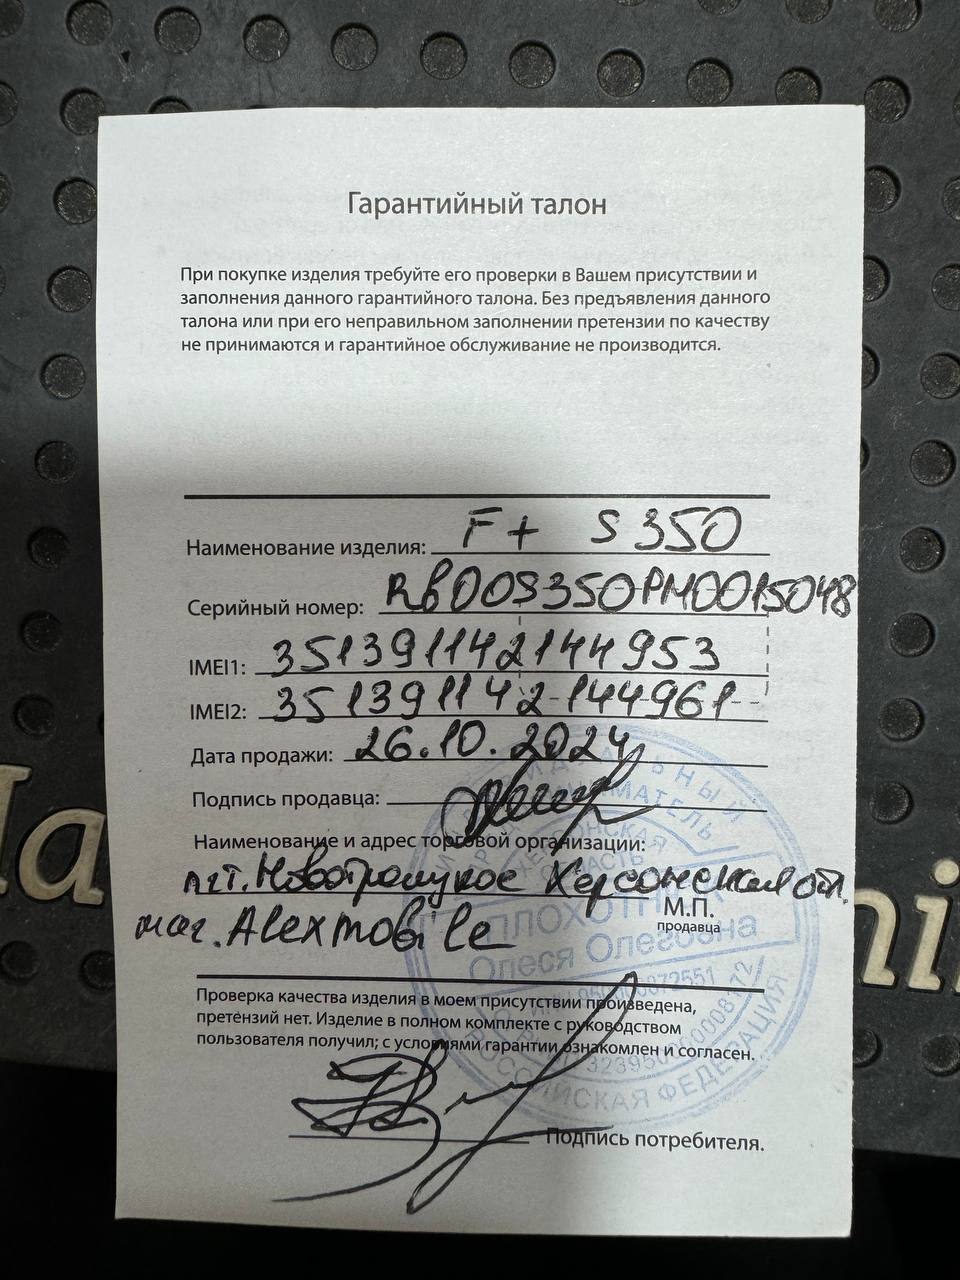 Гарантийный талон
При покупке изделия требуйте его проверки в Вашем присутствии и
заполнения данного гарантийного талона. Без предъявления данного
талона или при его неправильном заполнении претензии по качеству
не принимаются и гарантийное обслуживание не производится.
Наименование изделия: F+ S350
Серийный номер: RB00S350PM0015048
IMEI1: 351391142144953
IMEI2: 351391142144961
Дата продажи: 26.10.2024
Подпись продавца:
Наименование и адрес торговой организации:
пгт. Новотроицкое Херсонская обл.
маг. Alexmobile
М.П.
продавца
ПЛОХОТН
Олеся Олеговна
РОССИЙСКАЯ ФЕДЕРАЦИЯ
Проверка качества изделия в моем присутствии произведена,
претензий нет. Изделие в полном комплекте с руководством
пользователя получил; с условиями гарантии ознакомлен и согласен.
Подпись потребителя.